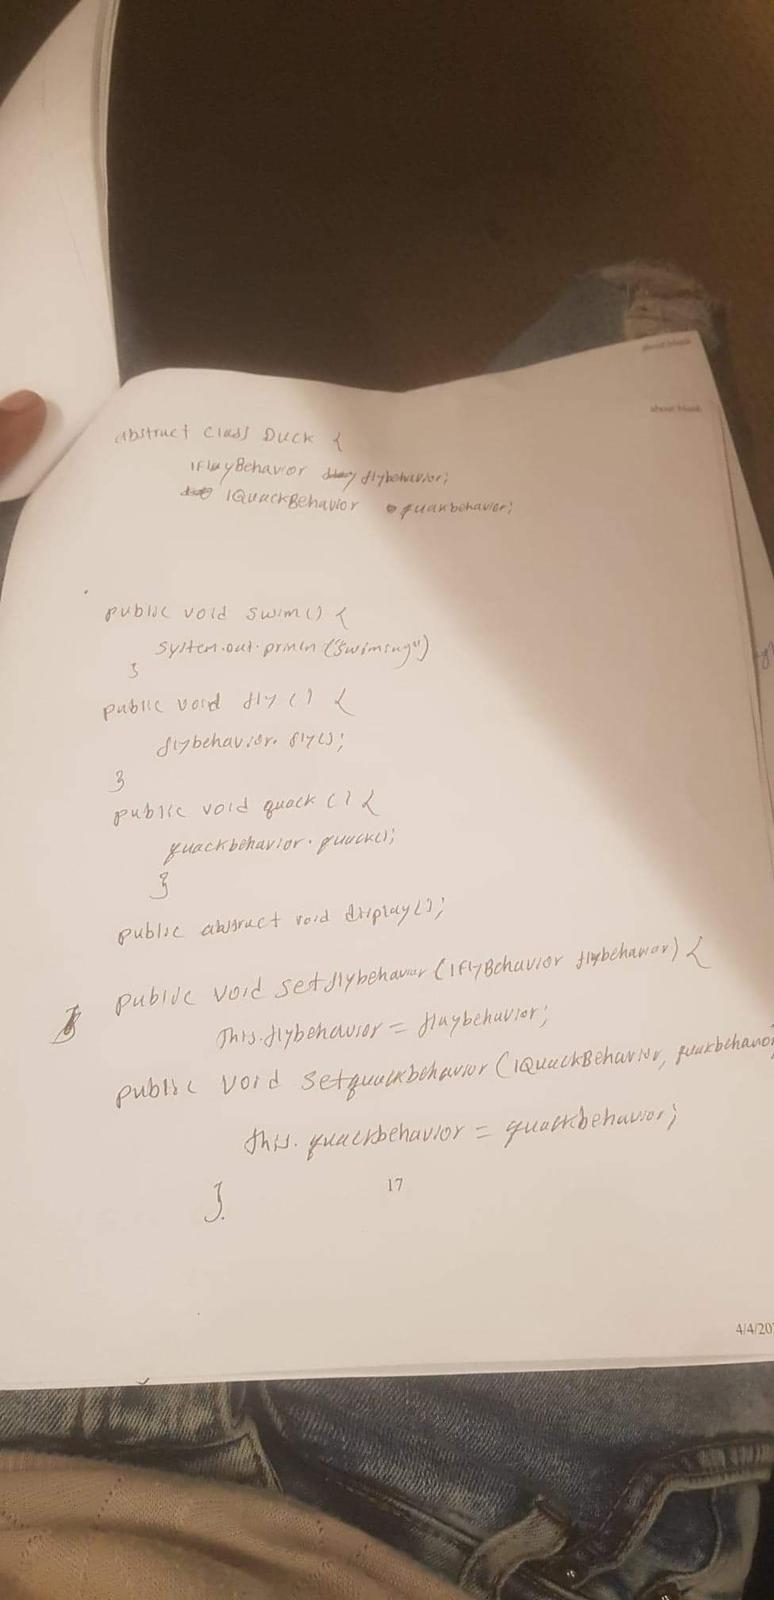 about:blank
about:blank
abstract class Duck {
IFlayBehavior flybehavior;
IQuackBehavior quakbehavior;
public void swim() {
system.out.prinln ("swimsing")
}
public void fly () {
flybehavior. fly();
}
public void quack () {
quackbehavior. quack();
}
public abstract void display();
public void setflybehavior (IFlyBehavior flybehavior) {
This.flybehavior = flaybehavior;
public void setquackbehavior (IQuackBehavior, quakbehavio
this. quackbehavior = quackbehavior;
17
}
4/4/20